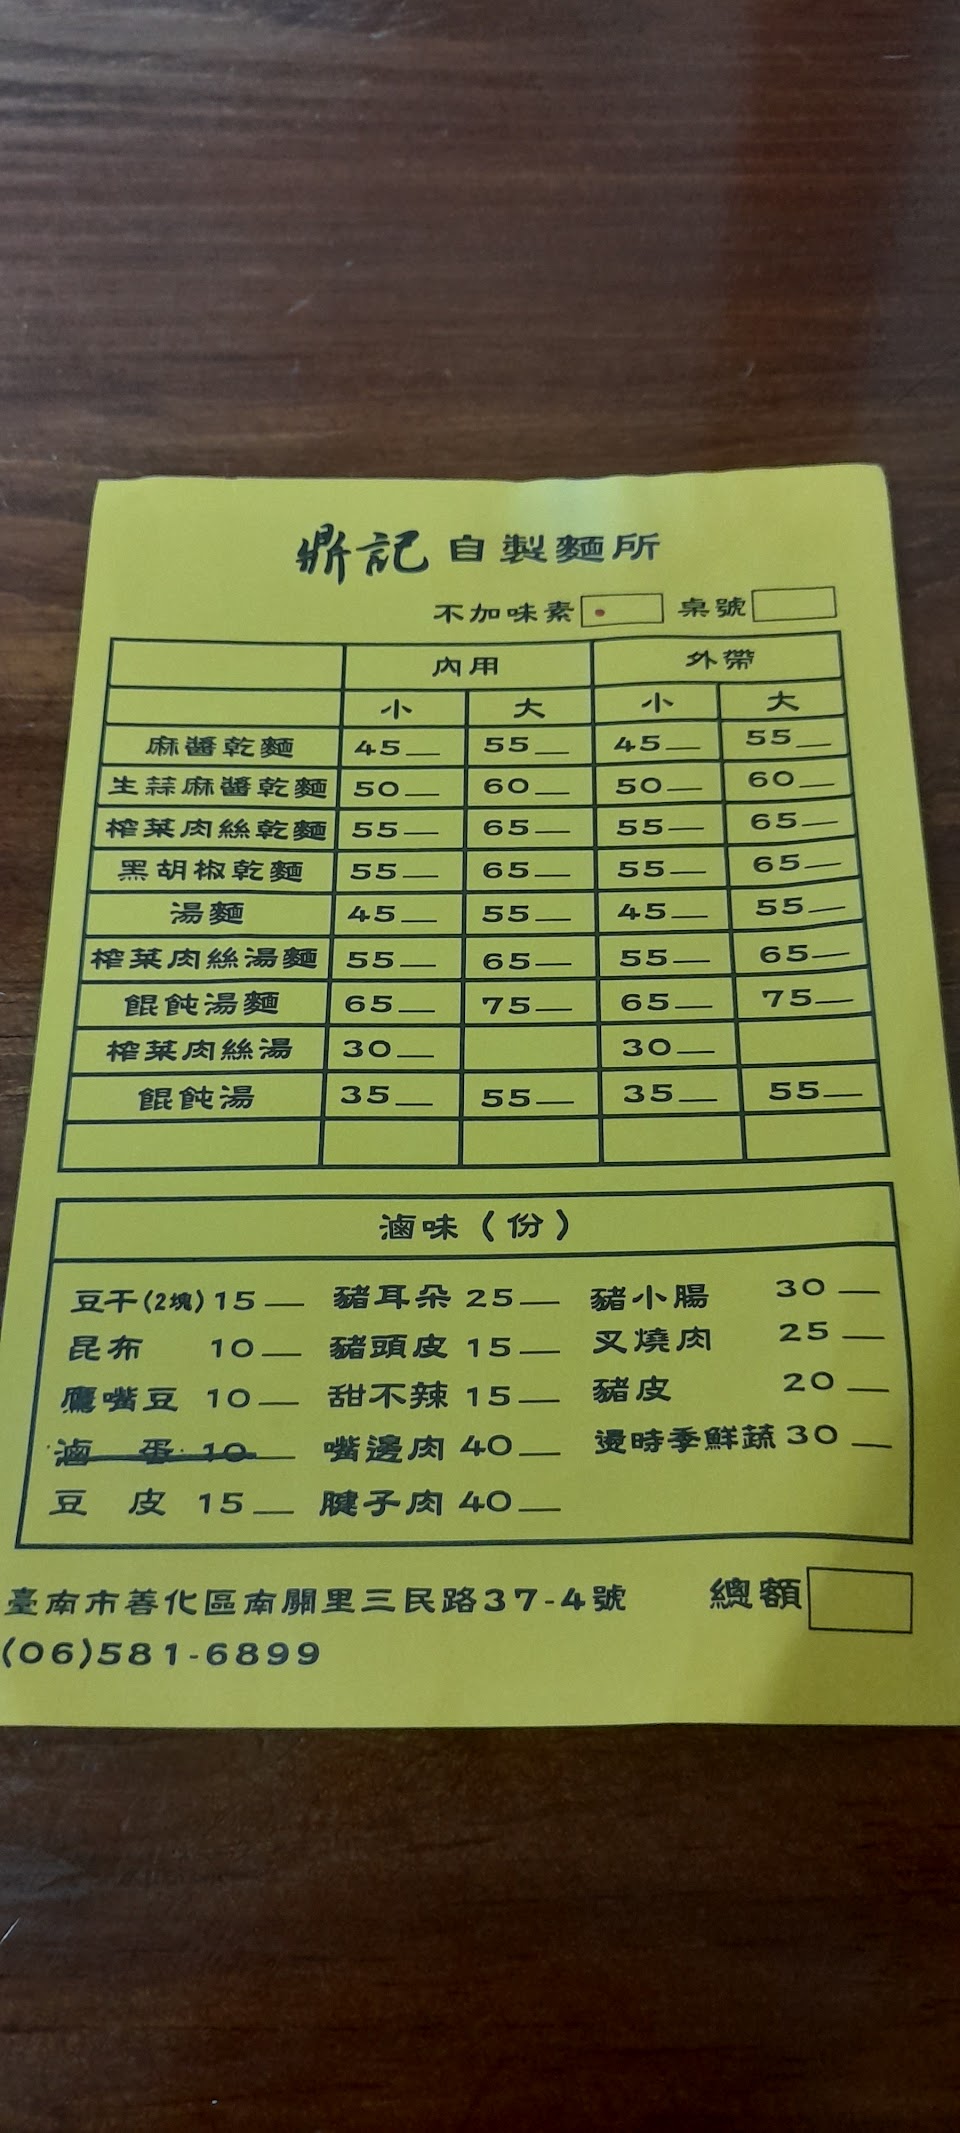 鼎記 自製麵所
不加味素 桌號
內用 外帶
小 大 小 大
麻醬乾麵 45 55 45 55
生蒜麻醬乾麵 50 60 50 60
榨菜肉絲乾麵 55 65 55 65
黑胡椒乾麵 55 65 55 65
湯麵 45 55 45 55
榨菜肉絲湯麵 55 65 55 65
餛飩湯麵 65 75 65 75
榨菜肉絲湯 30 30
餛飩湯 35 55 35 55
滷味(份)
豆干(2塊) 15 豬耳朵 25 豬小腸 30
昆布 10 豬頭皮 15 叉燒肉 25
鷹嘴豆 10 甜不辣 15 豬皮 20
滷蛋 10 嘴邊肉 40 燙時季鮮蔬 30
豆皮 15 腱子肉 40
臺南市善化區南關里三民路37-4號 總額
(06)581-6899